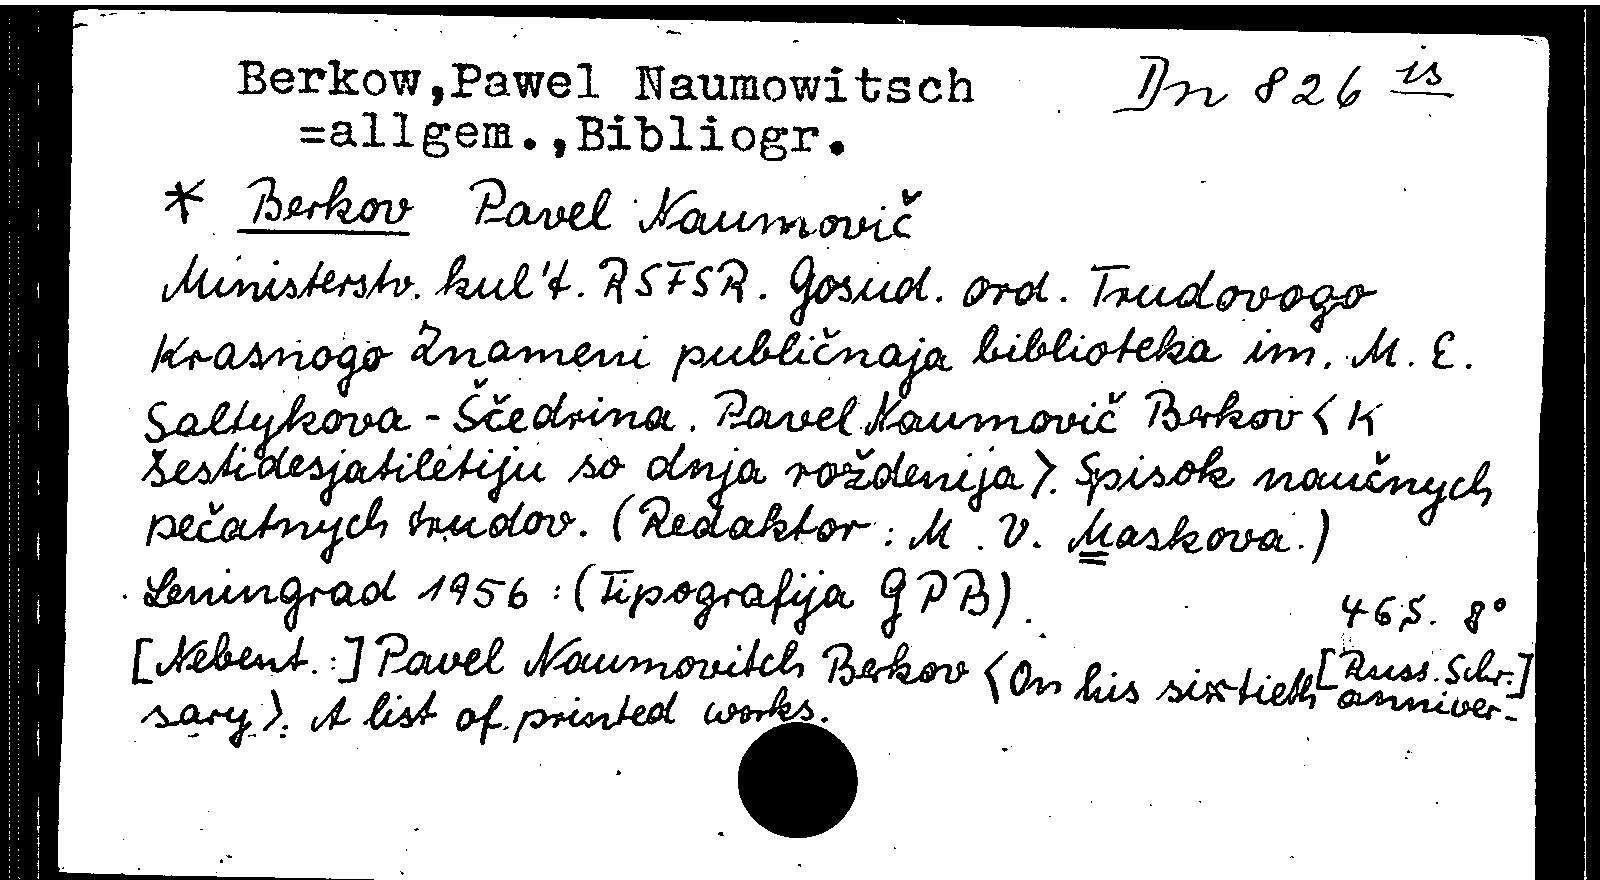 Berkow,Pawel Naumowitsch
Dn 826 is
=allgem.,Bibliogr.
* Berkov Pavel Naumovič
Ministerstv. kul't. RSFSR. Gosud. ord. Trudovogo
Krasnogo Znameni publičnaja biblioteka im. M. E.
Saltykova - Ščedrina. Pavel Naumovič Berkov < K
šestidesjatiletiju so dnja roždenija >. Spisok naučnych
pečatnych trudov. (Redaktor : M. V. Maskova.)
Leningrad 1956 : (Tipografija GPB).
46 S. 8°
[Nebent. :] Pavel Naumovitch Berkov < On his sixtieth anniver-
[Russ. Schr.]
sary >. A list of printed works.